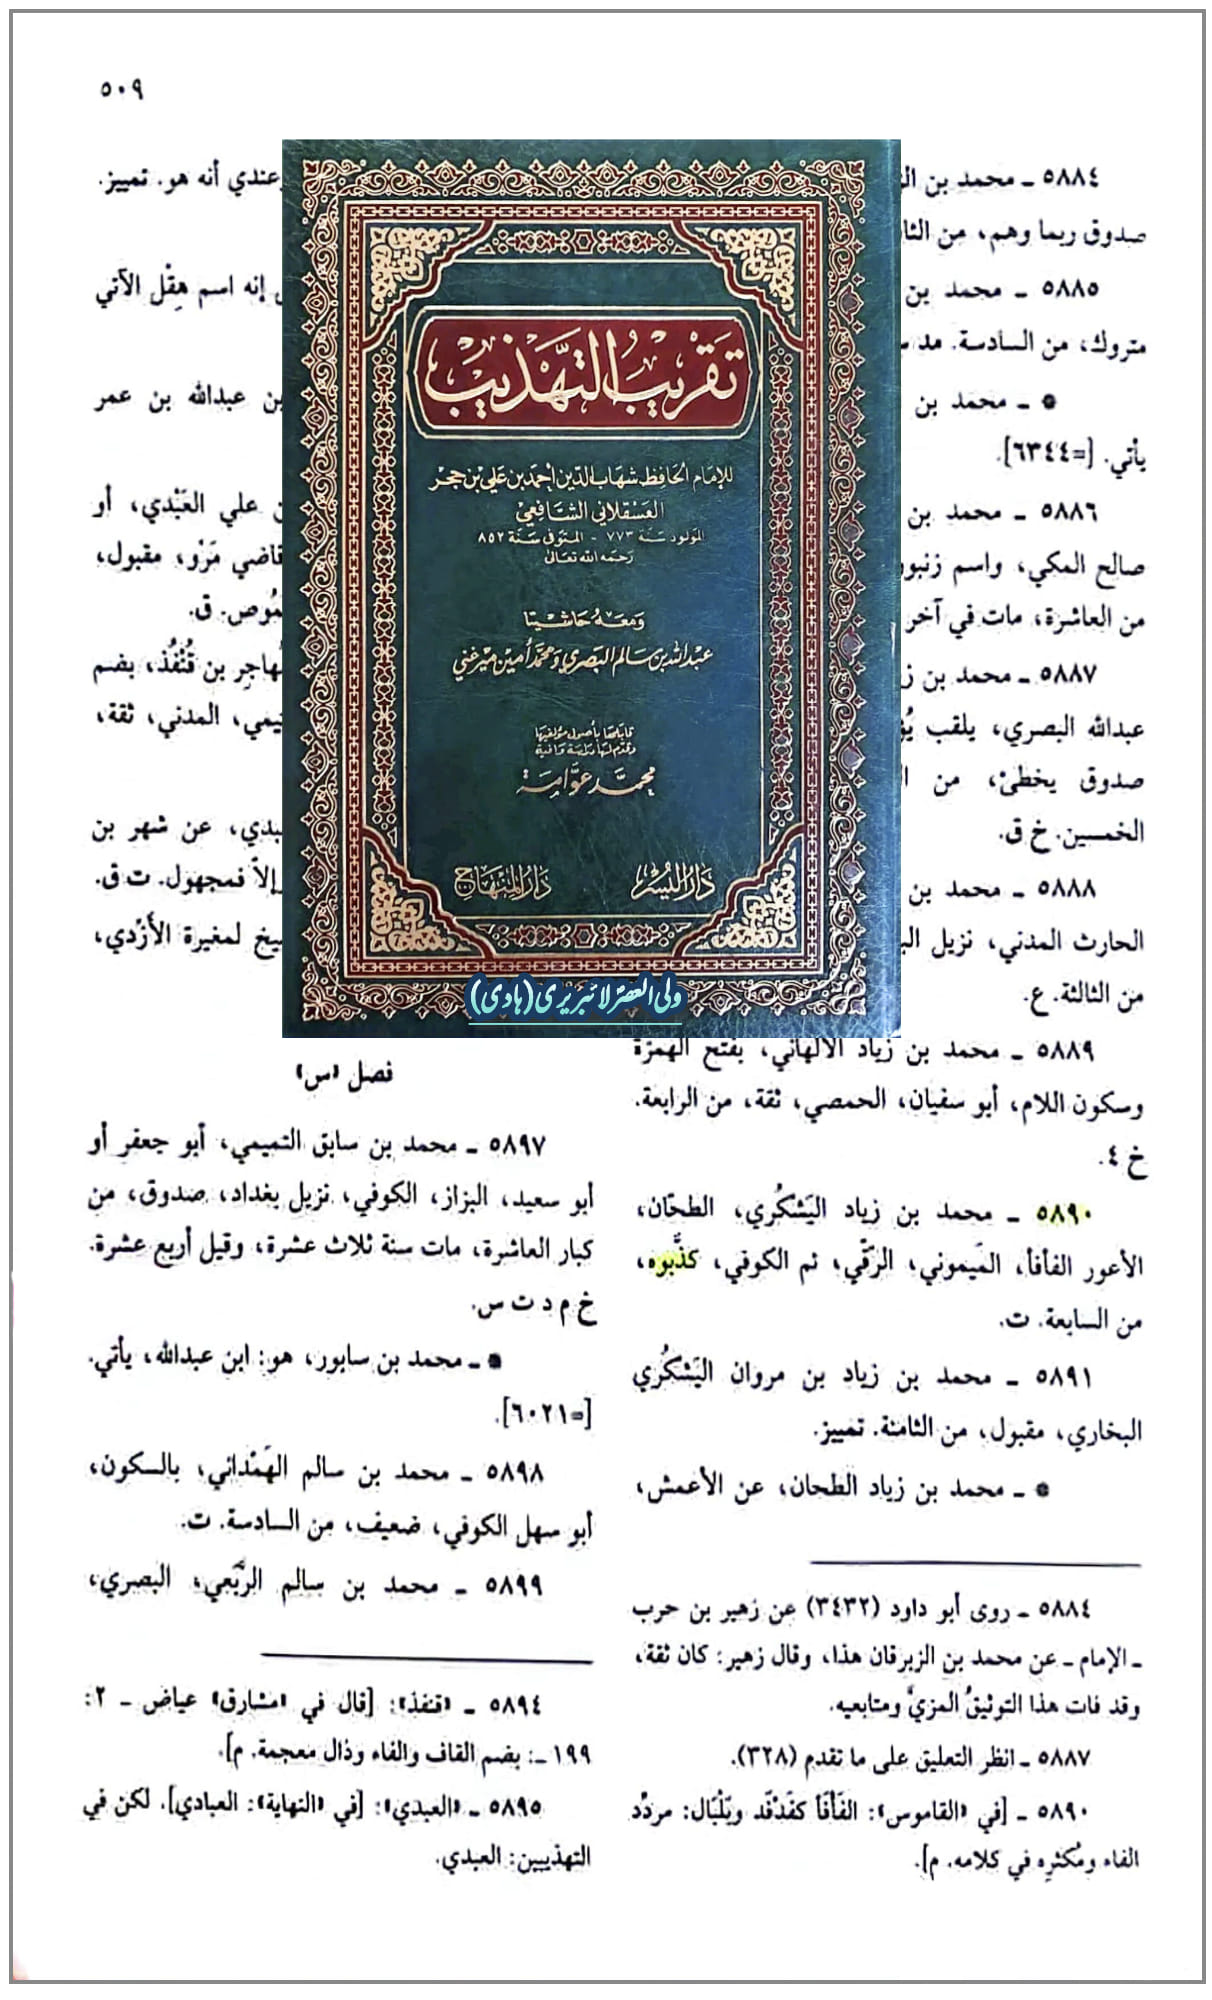 ٥٠٩
٥٨٨٤ ـ محمد بن
صدوق ربما وهم، من
٥٨٨٥ ـ محمد بن
متروك، من السادسة. مد
* ـ محمد بن
يأتي. [=٦٣٤٤].
٥٨٨٦ ـ محمد بن
صالح المكي، واسم زنبور
من العاشرة، مات في آخر
٥٨٨٧ ـ محمد بن
عبدالله البصري، يلقب
صدوق يخطئ، من
الخمسين. خ ق.
٥٨٨٨ ـ محمد بن
الحارث المدني، نزيل
من الثالثة. ع.
٥٨٨٩ ـ محمد بن زياد الألهاني، بفتح الهمزة
وسكون اللام، أبو سفيان، الحمصي، ثقة، من الرابعة.
خ ٤.
٥٨٩٠ ـ محمد بن زياد اليَشكُري، الطحّان،
الأعور الفأفأ، المَيموني، الرَّقّي، ثم الكوفي، كذَّبوه،
من السابعة. ت.
٥٨٩١ ـ محمد بن زياد بن مروان اليَشكُري
البخاري، مقبول، من الثامنة. تمييز.
* ـ محمد بن زياد الطحان، عن الأعمش،
٥٨٨٤ ـ روى أبو داود (٣٤٣٢) عن زهير بن حرب
ـ الإمام ـ عن محمد بن الزبرقان هذا، وقال زهير: كان ثقة،
وقد فات هذا التوثيقُ المزيَّ ومتابعيه.
٥٨٨٧ ـ انظر التعليق على ما تقدم (٣٢٨).
٥٨٩٠ ـ [في «القاموس»: الفَأْفَأ كفَدْفَد وبَلْبَال: مردِّد
الفاء ومُكثرِه في كلامه. م].
عندي أنه هو. تمييز.
إنه اسم هِقْل الآتي
بن عبدالله بن عمر
علي العَبْدي، أو
قاضي مَرْو، مقبول،
ق.
بن قُنْفُذ، بضم
المدني، ثقة،
عن شهر بن
إلاّ فمجهول. ت ق.
لمغيرة الأَزْدي،
فصل «س»
٥٨٩٧ ـ محمد بن سابق التميمي، أبو جعفر أو
أبو سعيد، البزاز، الكوفي، نزيل بغداد، صدوق، من
كبار العاشرة، مات سنة ثلاث عشرة، وقيل أربع عشرة.
خ م د ت س.
* ـ محمد بن سابور، هو: ابن عبدالله، يأتي.
[=٦٠٢١].
٥٨٩٨ ـ محمد بن سالم الهَمْداني، بالسكون،
أبو سهل الكوفي، ضعيف، من السادسة. ت.
٥٨٩٩ ـ محمد بن سالم الرَّبَعي، البصري،
٥٨٩٤ ـ «قنفذ»: [قال في «مشارق» عياض ـ ٢:
١٩٩ ـ: بضم القاف والفاء وذال معجمة. م].
٥٨٩٥ ـ «العبدي»: [في «النهاية»: العبادي]. لكن في
التهذيبين: العبدي.
تقريب التهذيب
للإمام الحافظ شهاب الدين أحمد بن علي بن حجر
العسقلاني الشافعي
المولود سنة ٧٧٣ - المتوفى سنة ٨٥٢
رحمه الله تعالى
ومعه حاشيتا
عبدالله بن سالم البصري ومحمد أمين ميرغني
قابلها بأصول مؤلفيها
وقدم لها دراسة وافية
محمد عوامة
دار اليسر
دار المنهاج
ولی العصر لائبریری (ہادی)